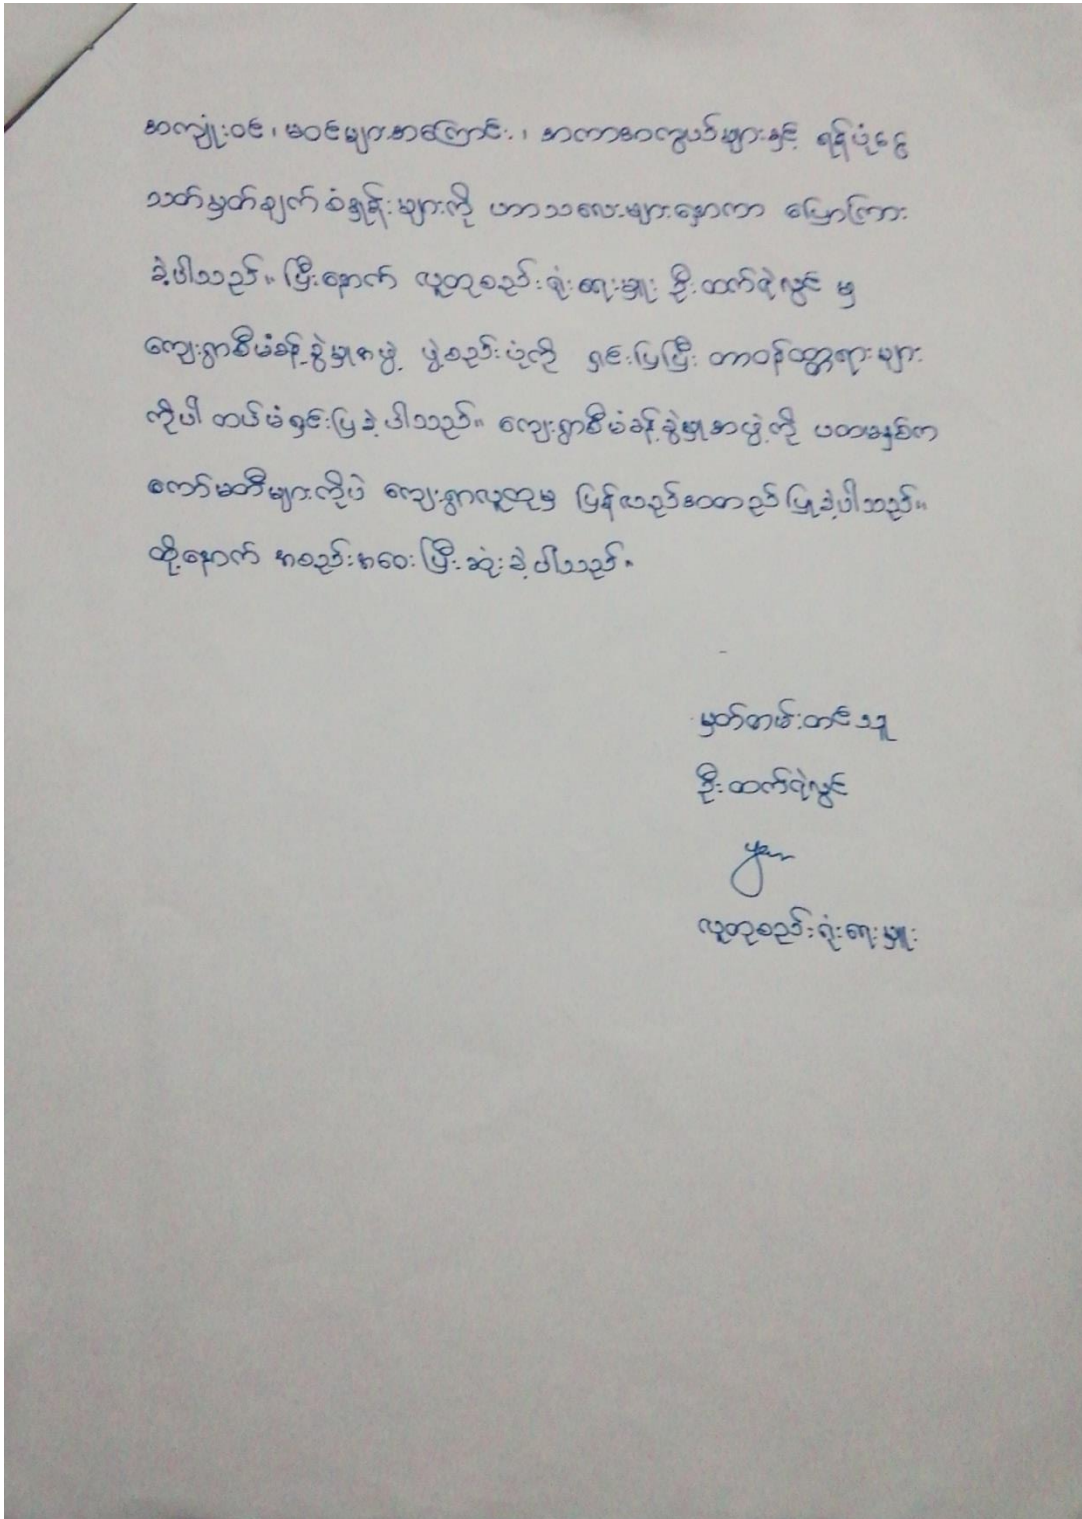 အကျုံးဝင်၊ မဝင်များအကြောင်း၊ အကာအကွယ်များနှင့် ရန်ပုံငွေ
သတ်မှတ်ချက်စံနှုန်းများကို ဟာသလေးများနှောကာ ပြောကြား
ခဲ့ပါသည်။ ပြီးနောက် လူထုစည်းရုံးရေးမှူး ဦးထက်ဇဲလွင် မှ
ကျေးရွာစီမံခန့်ခွဲမှုအဖွဲ့ ဖွဲ့စည်းပုံကို ရှင်းပြပြီး တာဝန်ဝတ္တရားများ
ကိုပါ ထပ်မံရှင်းပြခဲ့ပါသည်။ ကျေးရွာစီမံခန့်ခွဲမှုအဖွဲ့ကို ပထမနှစ်က
ကော်မတီများကိုပဲ ကျေးရွာလူထုမှ ပြန်လည်အတည်ပြုခဲ့ပါသည်။
ထို့နောက် အစည်းအဝေးပြီးဆုံးခဲ့ပါသည်။
မှတ်တမ်းတင်သူ
ဦးထက်ဇဲလွင်
လူထုစည်းရုံးရေးမှူး